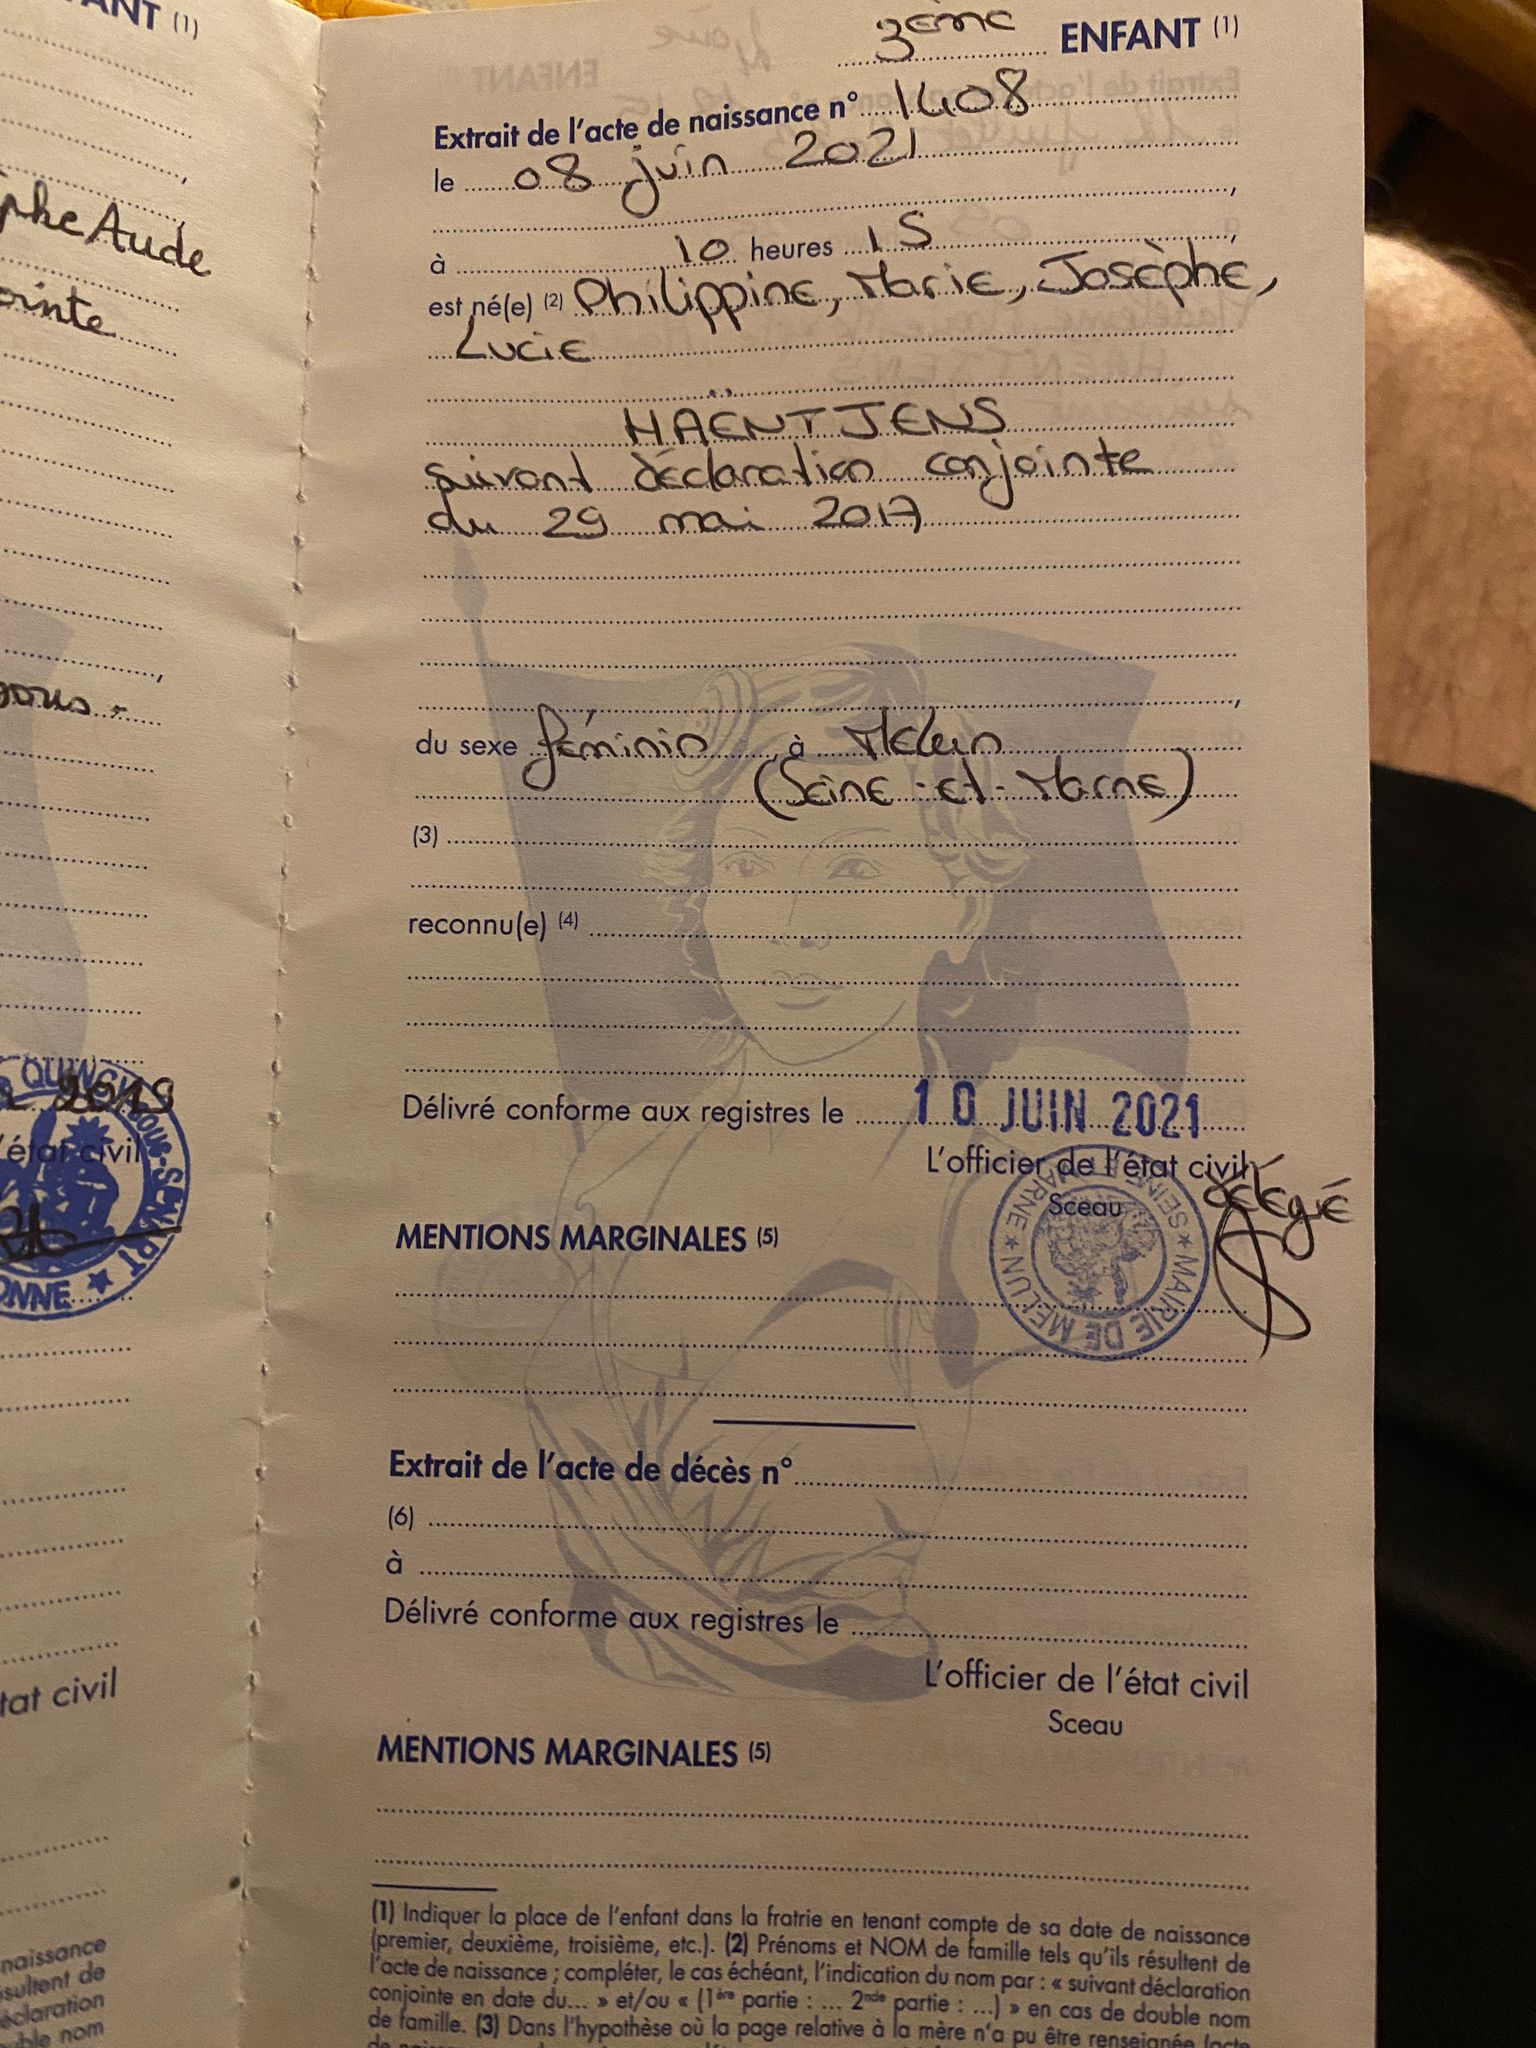 ANT (1)
phe Aude
ointe
2019
l'état civil
état civil
naissance
ésultent de
déclaration
ouble nom
3ème ENFANT (1)
Extrait de l'acte de naissance n° 1408
le 08 juin 2021
,
à 10 heures 15 ,
est né(e) (2) Philippine, Marie, Josèphe,
Lucie
HAËNTJENS
suivant déclaration conjointe
du 29 mai 2017
,
du sexe féminin , à Melun
(Seine-et-Marne)
(3)
reconnu(e) (4)
Délivré conforme aux registres le 10 JUIN 2021
L'officier de l'état civil délégué
Sceau
MAIRIE DE MELUN ★ SEINE-ET-MARNE ★
MENTIONS MARGINALES (5)
Extrait de l'acte de décès n°
(6)
à
Délivré conforme aux registres le
L'officier de l'état civil
Sceau
MENTIONS MARGINALES (5)
(1) Indiquer la place de l'enfant dans la fratrie en tenant compte de sa date de naissance
(premier, deuxième, troisième, etc.). (2) Prénoms et NOM de famille tels qu'ils résultent de
l'acte de naissance ; compléter, le cas échéant, l'indication du nom par : « suivant déclaration
conjointe en date du... » et/ou « (1ère partie : ... 2nde partie : ...) » en cas de double nom
de famille. (3) Dans l'hypothèse où la page relative à la mère n'a pu être renseignée (acte